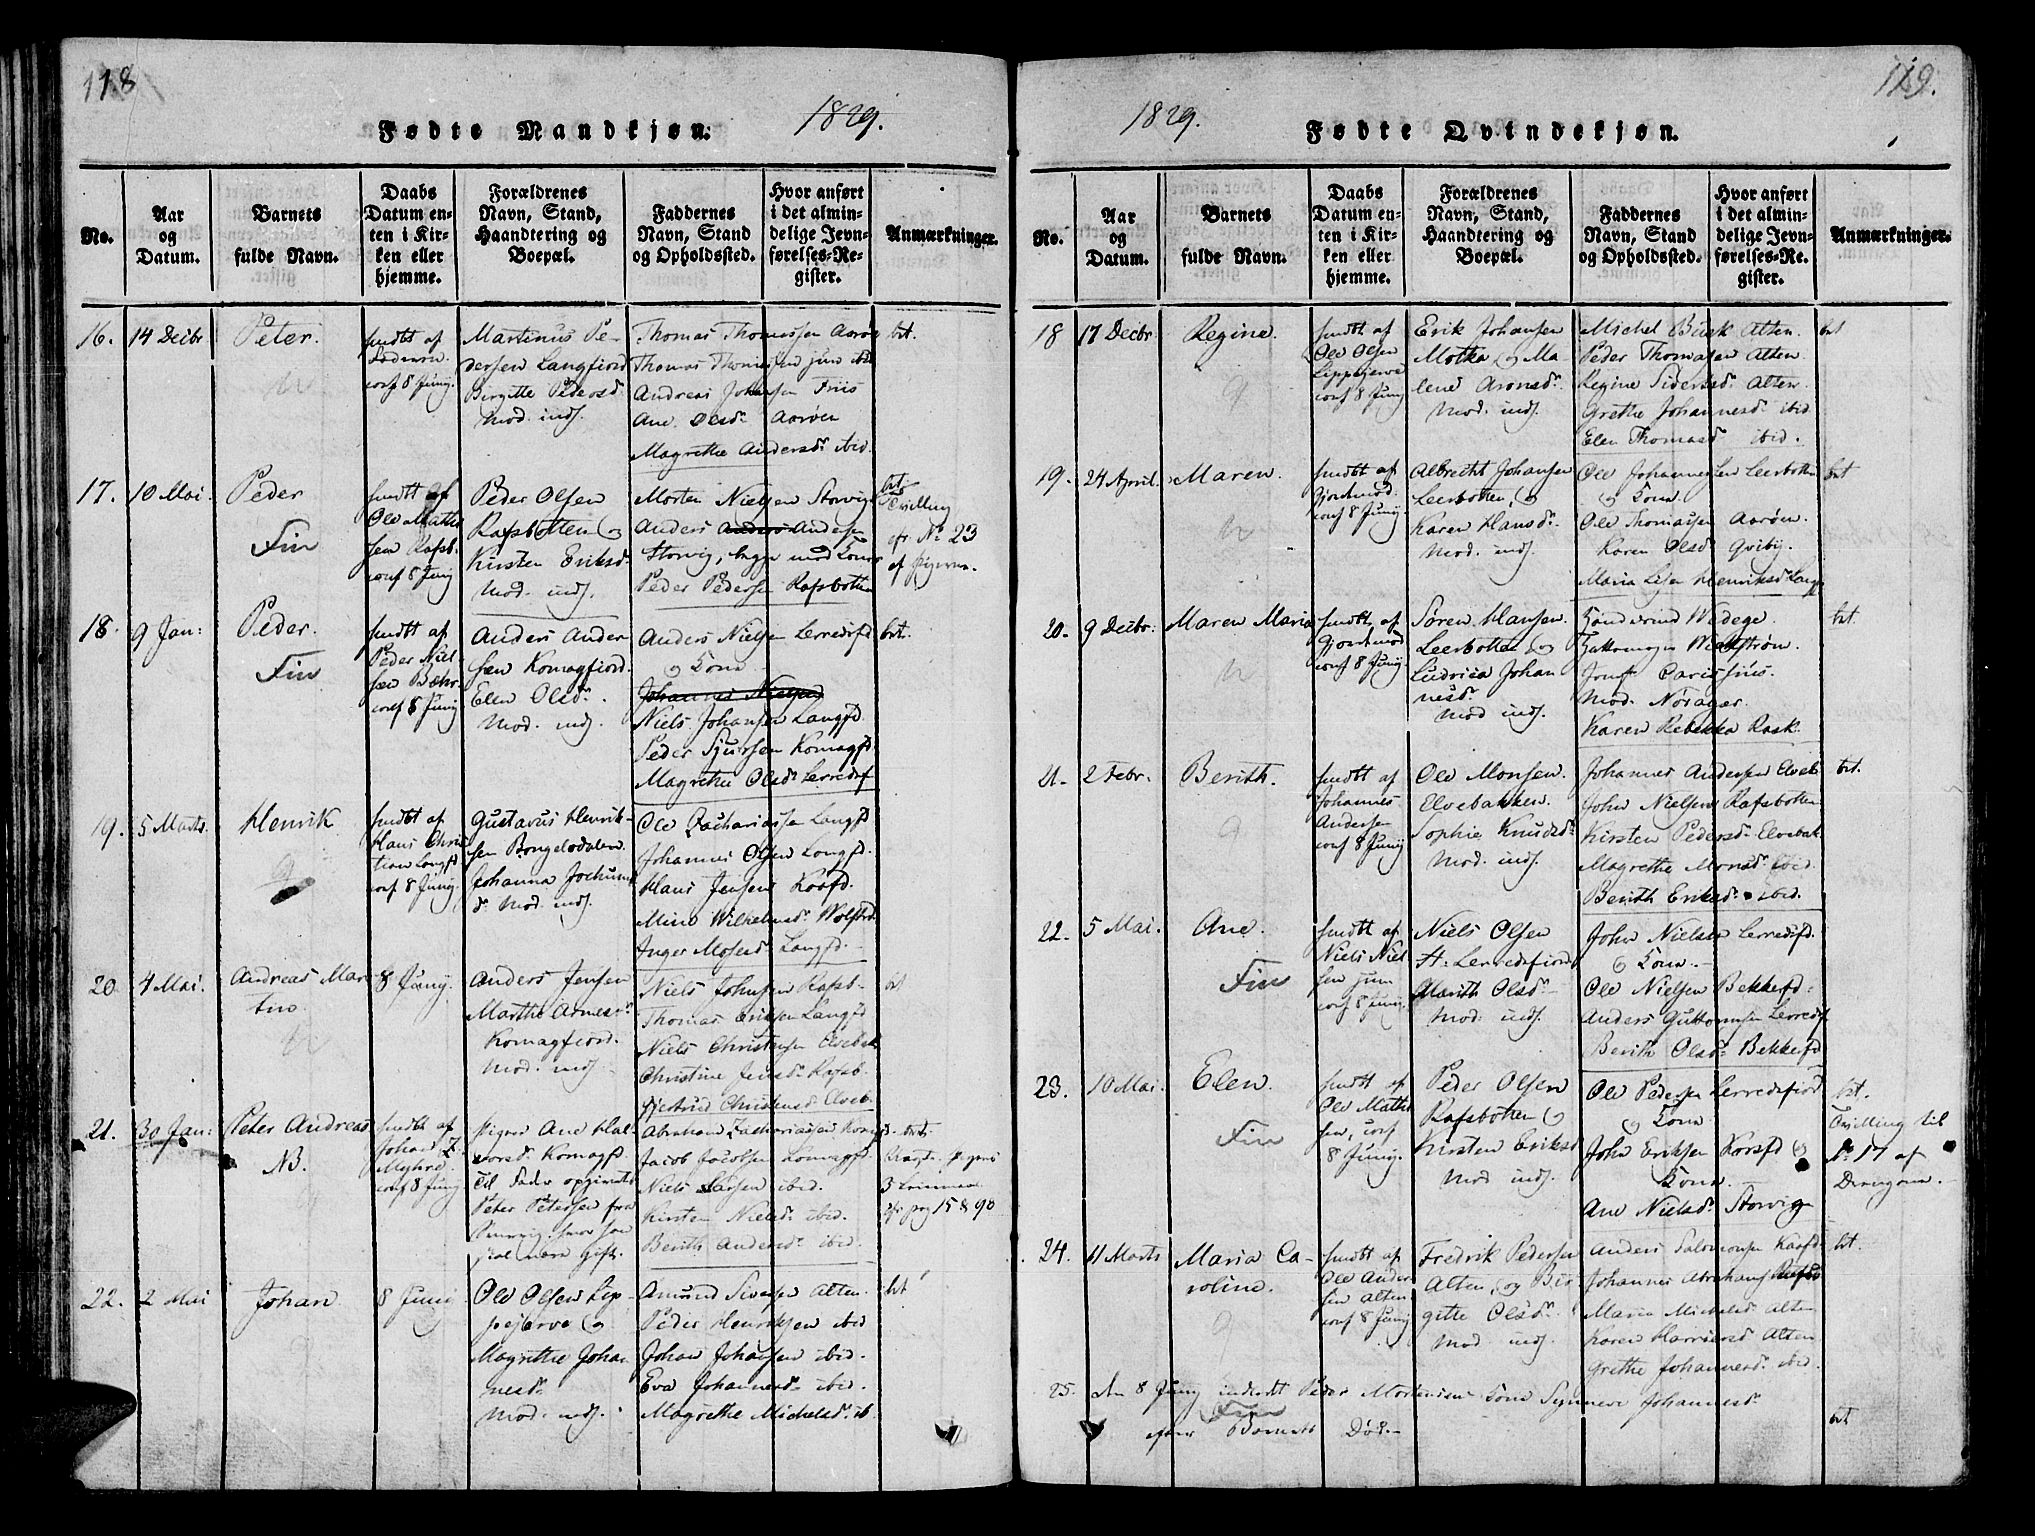 118
Fødte Mandkjøn.
1829.
No.
Aar og Datum.
Barnets fulde Navn.
Daabs Datum enten i Kirken eller hjemme.
Forældrenes Navn, Stand, Haandtering og Boepæl.
Faddernes Navn, Stand og Opholdssted.
Hvor anført i det almindelige Jevnførelses-Register.
Anmærkninger.
16.
14 Decbr
Peter.
hmdt af
conf 8 Junij.
Martinus Pe-
dersen Langfiord
Birgitte Pedersdr
Mod. inds.
Thomas Thomassen Aarøe
Thomas Thomassen jun ibid
Andreas Johansen Friis
Ane Olsdr Aarøen
Magrethe Andersdr ibid.
bt.
17.
10 Mai.
Peder
Fin
hmdt af
Ole Mathi
sen Rafsb.
conf 8 Junij
Peder Olsen
Rafsbotten og
Kirsten Eriksdr
Mod. inds.
Morten Nielsen Storvig
Anders Anders Andersen
Storvig, begge med Koner
Peder Pedersen Rafsbotten
bt.
Tvilling
cfr No 23
af Pigerne.
18.
9 Jan:
Peder.
Fin
hmdt af
Peder Niel
sen
conf 8 Junij
Anders Ander
sen Komagfiord.
Elen Olsdr.
Mod. inds.
Anders Nielsen Lerredsfd
og Kone
Johannes Nielsen
Niels Johansen Langfd.
Peder Sjursen Komagfd.
Magrethe Olsdr Lerredsf
bt.
19.
5 Marts.
Henrik
hmdt af
Hans Chris
tian Langfd
conf 8 Junij.
Gustavus Henrik-
sen
Johanna Jochums
dr Mod. inds.
Ole Zachariassen Langfd
Johannes Olsen Langfd.
Hans Jensen Kaafd.
Mine Wilhelmsdr
Inger Mosesd Langfd.
20
4 Mai.
Andreas Mar
tin.
8 Junij.
Anders Jensen
Marthe Arnesdr
Komagfiord.
Mod. inds.
Niels Johnsen Rafsb-
Thomas Eriksen Langfd
Niels Christensen Elvebak
Christine Jensdr Rafsb.
Christensd Elveb.
bt
21.
30 Jan:
Peter Andreas
NB.
hmdt af
Johan Z.
conf 8 Junij
Pigen Ane Hal-
vorsd. Komagfd.
Til Fader opgivet
Peter Petersen fra
skal være gift.
Abraham Zachariassen Komagfd.
Jacob Jacobsen Komagfd.
Niels Larsen ibid.
Kirsten Nielsdr ibid.
Berith Andersdr ibid.
bt.
Pigens
3
cfr pag 15 & 90
22.
2 Mai
Johan
8 Junij
Ole Olsen Lip-
pejerve og
Magrethe Johan
nesdr
Mod. inds.
Amund Siversen Alten.
Peder Henriksen ibid
Johan Johansen ibid.
Eva Johannesdr ibid.
Magrethe Michelsd. ib.
bt
119.
1829.
Fødte Qvindekjøn.
No.
Aar og Datum.
Barnets fulde Navn.
Daabs Datum enten i Kirken eller hjemme.
Forældrenes Navn, Stand, Haandtering og Boepæl.
Faddernes Navn, Stand og Opholdssted.
Hvor anført i det almindelige Jevnførelses-Register.
Anmærkninger.
18
17 Decbr
Regine.
hmdt af
Ole Olsen
Lippejerve
conf 8 Junij
Erik Johansen
Motka og Ma
lene Aronsdr
Mod. inds.
Michel Busk Alten.
Peder Thomasen Alten.
Regine Siversdr Alten
Grethe Johannesdr ibid
Elen Thomasd ibid.
bt
19.
24 April.
Maren.
hmdt af
Gjordemod.
conf 8 Junij.
Albrecht Johansen
Leerbotten, og
Karen Hansdr
Mod. inds.
Ole Johannessen Leerbotten
og Kone.
Ole Thomassen Aarøn.
Karen Olsd Qviby.
Maria Lisa Henriksd Langf
bt
20.
9 Decbr.
Maren Maria
hmdt af
Gjordemod
conf 8 Junij
Søren Hansen.
Leerbotten og
Ludvica Johan
nesdr
Mod inds.
Handverind Wedege.
Wedstrøm.
Jomf Carissius.
Mad. Norager.
Karen Rebekka Rask.
bt.
21.
2 Febr.
Berith.
hmdt af
Johannes
Andersen
conf 8 Junij
Ole Monsen.
Elvebakken.
Sophie Knudsdr
Mod. inds.
Johannes Andersen Elveb
John Nielsen Rafsbotten
Kirsten Pedersdr Elvebak.
Magrethe Monsdr ibid
Berith Eriksdr ibid.
bt.
22.
5 Mai.
Ane.
Fin
hmdt af
Niels Niel
sen jun
conf 8 Junij.
Niels Olsen
St. Lerredsfiord
Marith Olsdr
Mod. inds.
John Nielsen Lerredsfd.
og Kone.
Ole Nielsen Bekkerfd.
Anders Guttormsen Lerredsf.
Berith Olsdr Bekkerfd
23.
10 Mai.
Elen.
Fin
hmdt af
Ole Mathi
sen, conf
8 Junij.
Peder Olsen
Rafsbotten og
Kirsten Eriksd
Mod inds.
Ole Pedersen Lerredsfiord
og Kone
John Eriksen Korsfd og
Kone.
Ane Nielsdr Storvig
bt.
Tvilling til
No 17 af
Drengene.
24.
11 Marts
Maria Ca-
roline.
hmdt af
Ole Ander
sen Alten
conf 8 Junij
Fredrik Pedersen
Alten, og Bir
gitte Olsdr
Mod inds.
Anders Salomonsen Kaafd.
Johannes Abrahams
Maria Michelsd Alten
Karen Alten
Grethe Johannesdr ibid.
bt.
25.
den 8 Junij indledt Peder Mortensens Kone Synneve Johannesdr
Fin
efter Barnets Død.
bt